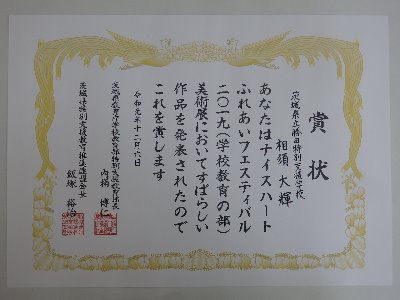 賞状
茨城県立勝田特別支援学校
相須 大輝
あなたはナイスハート
ふれあいフェスティバル
二〇一九(学校教育の部)
美術展においてすばらしい
作品を発表されたので
これを賞します
令和元年十二月六日
茨城県教育庁学校教育部特別支援教育課長
内桶 博仁
茨城県特別支援教育推進連盟会長
飯塚 裕